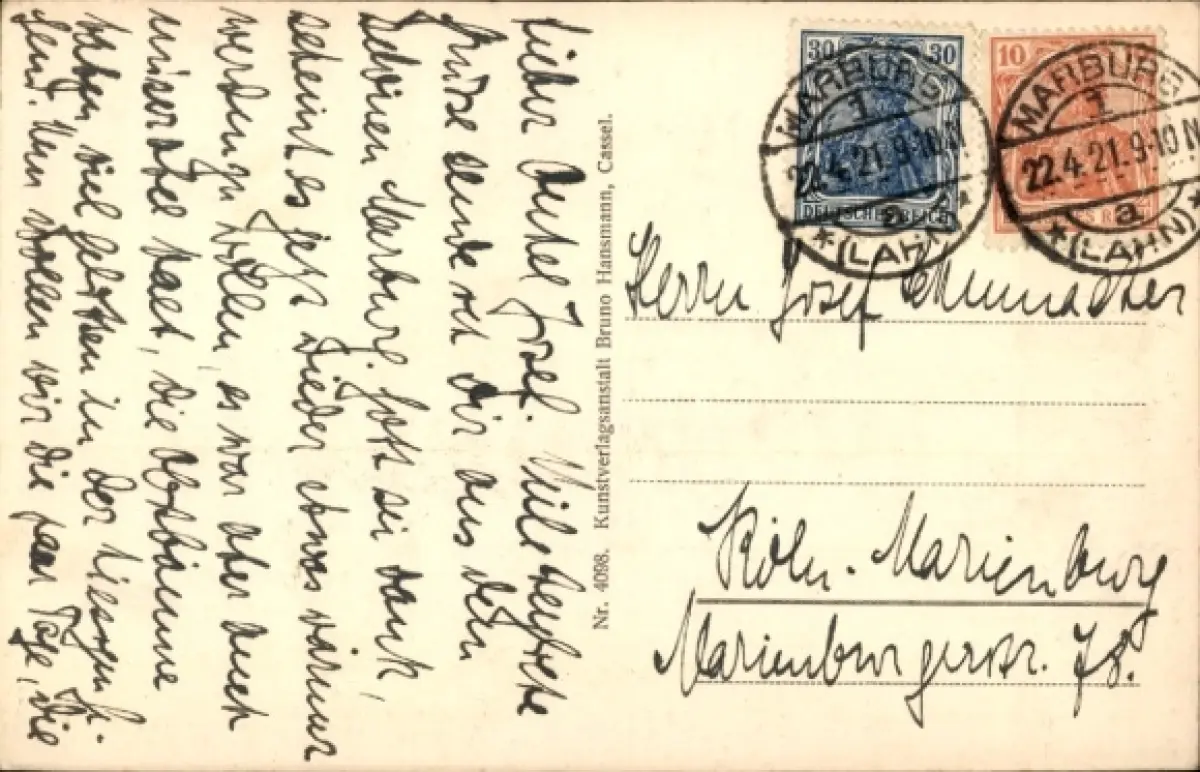 Lieber Onkel Josef. Viele
Grüße sende ich Dir aus dem
schönen Marburg. Gott sei dank,
scheint es jetzt wieder etwas wärmer
werden zu wollen, es war aber auch
miserabel kalt, die Obstbäume
haben viel gelitten in der hiesigen
gend. Nun wollen wir die paar Tage, die
Nr. 4098. Kunstverlagsanstalt Bruno Hansmann, Cassel.
30 30
DEUTSCHES REICH
10
MARBURG
1
22.4.21. 9-10 N
a
*(LAHN)*
MARBURG
1
22.4.21. 9-10 N
a
*(LAHN)*
Herrn Josef
Köln-Marienburg
Marienburgerstr. 78.